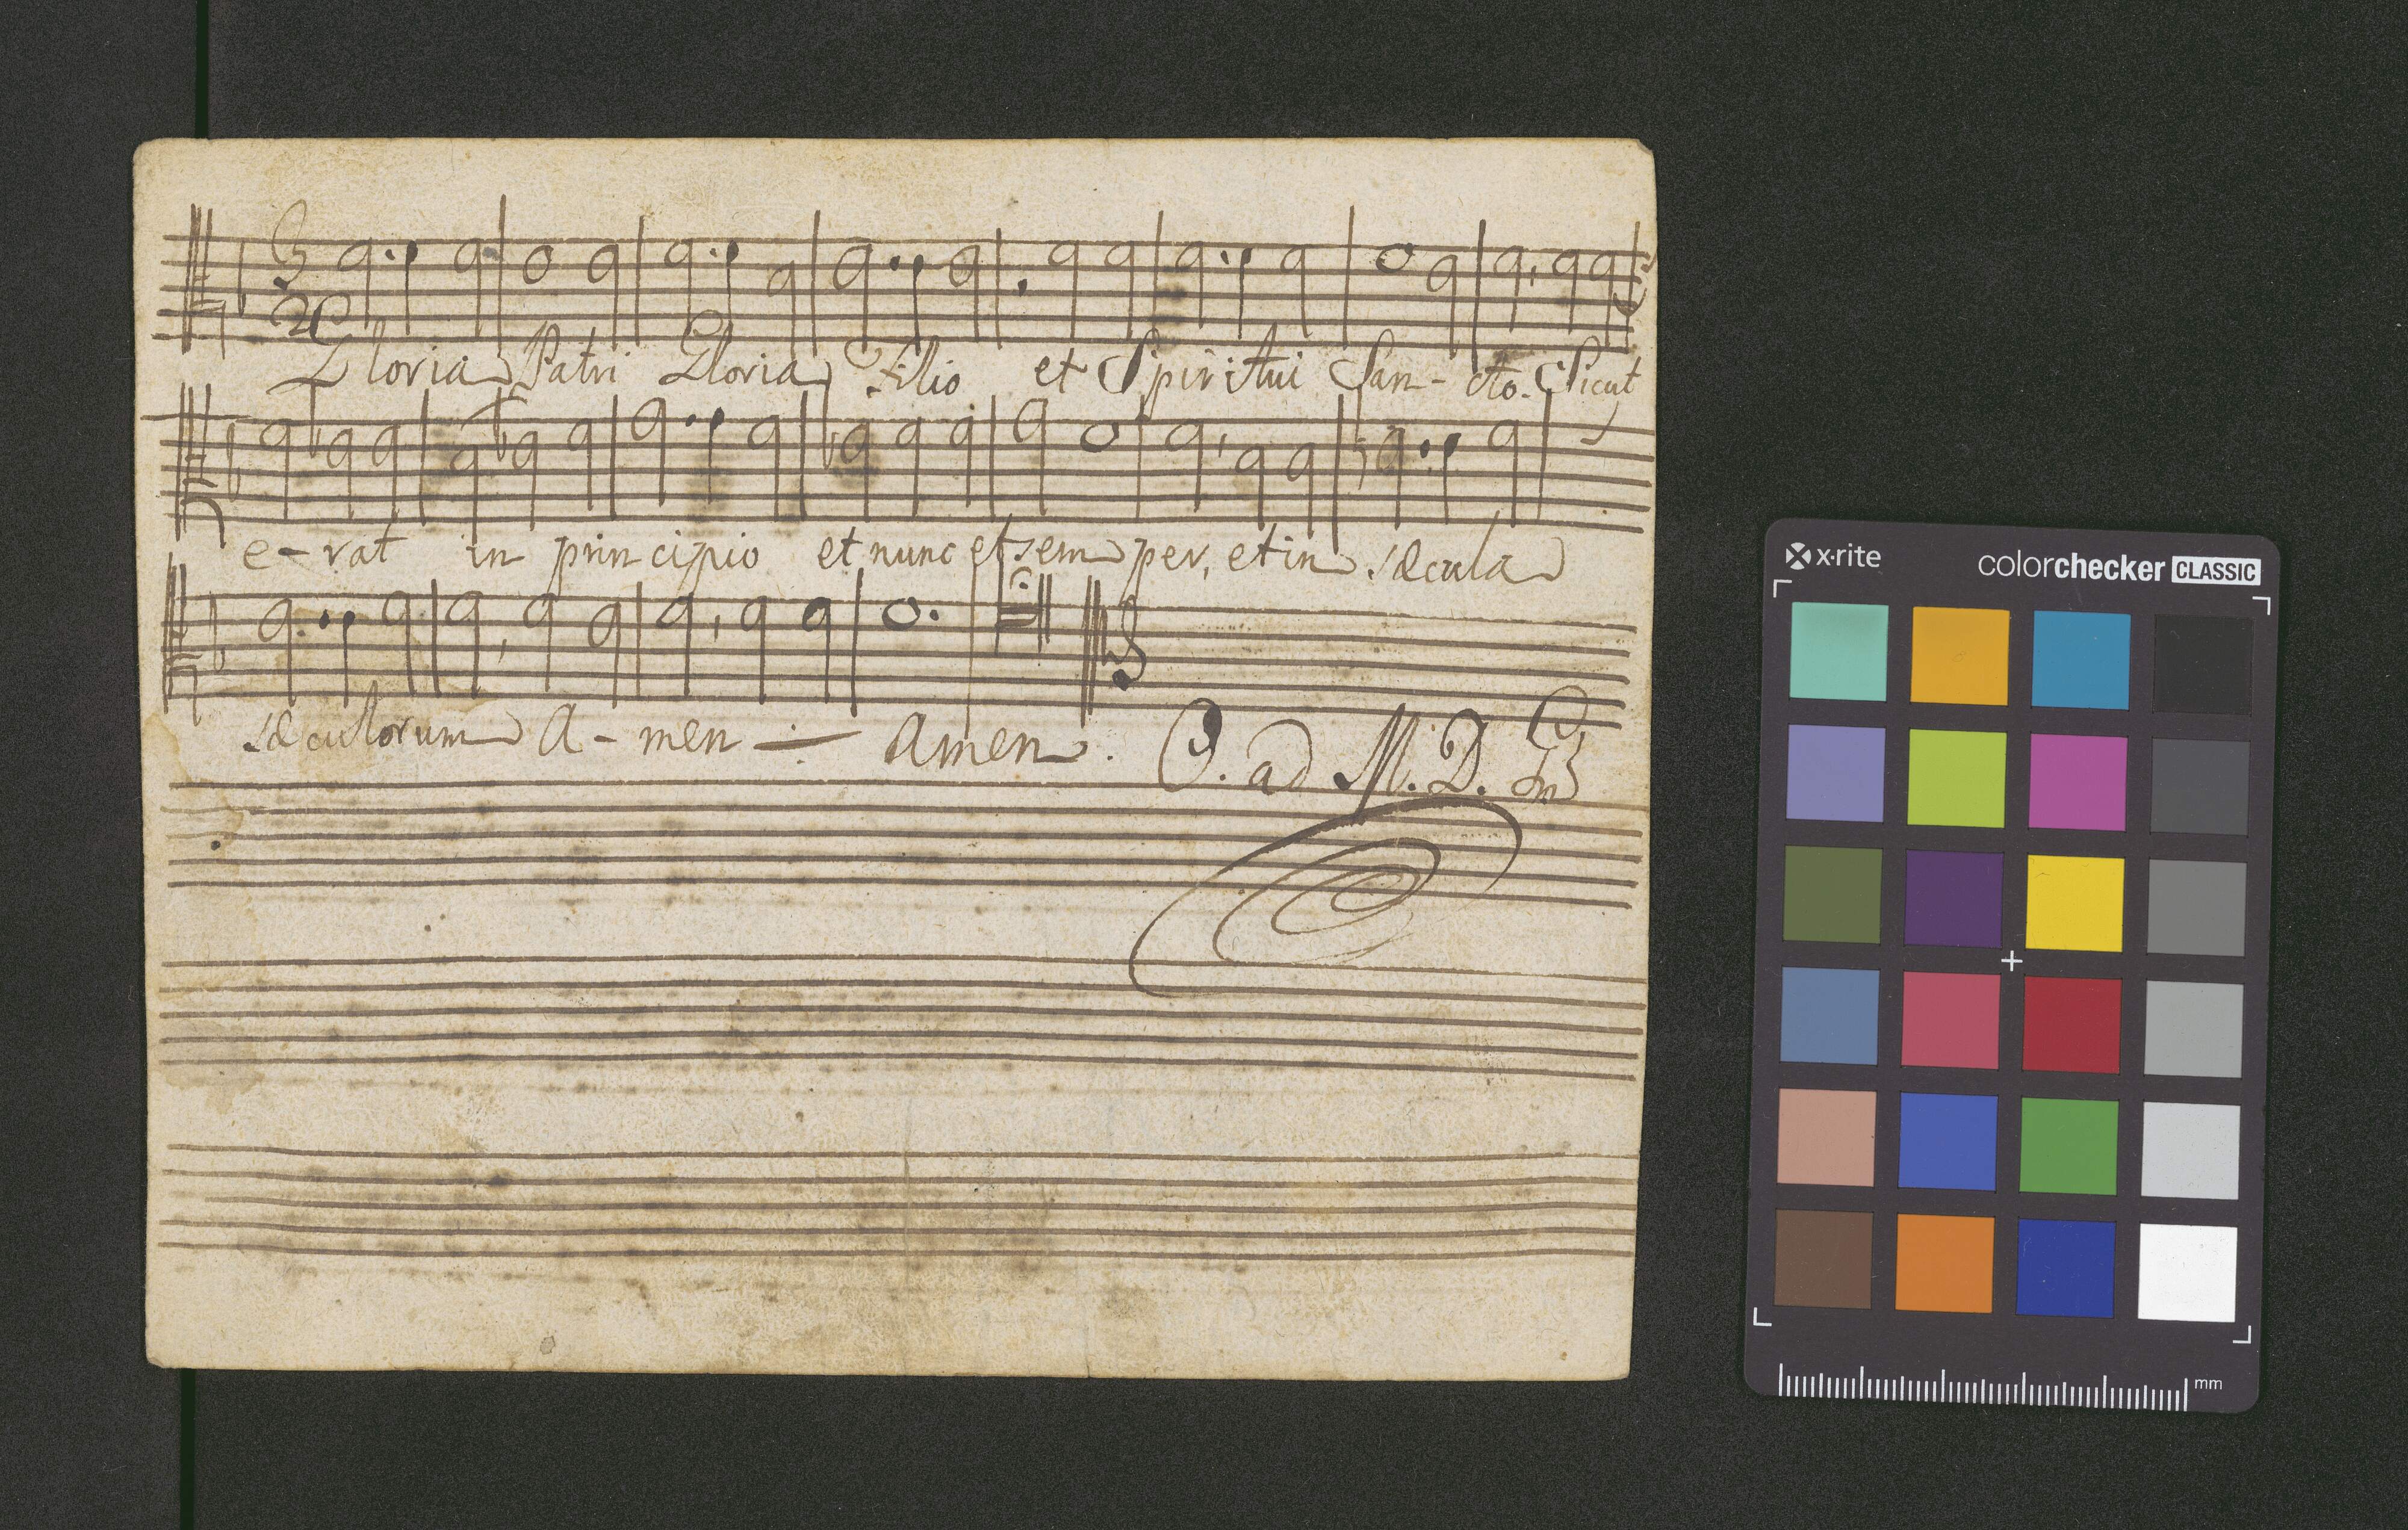 Gloria Patri Gloria Filio et Spiritui San-cto. Sicut
e-rat in principio et nunc et semper, et in sæcula
sæculorum A-men ÷ Amen. O. ad M. D.
x·rite colorchecker CLASSIC
mm